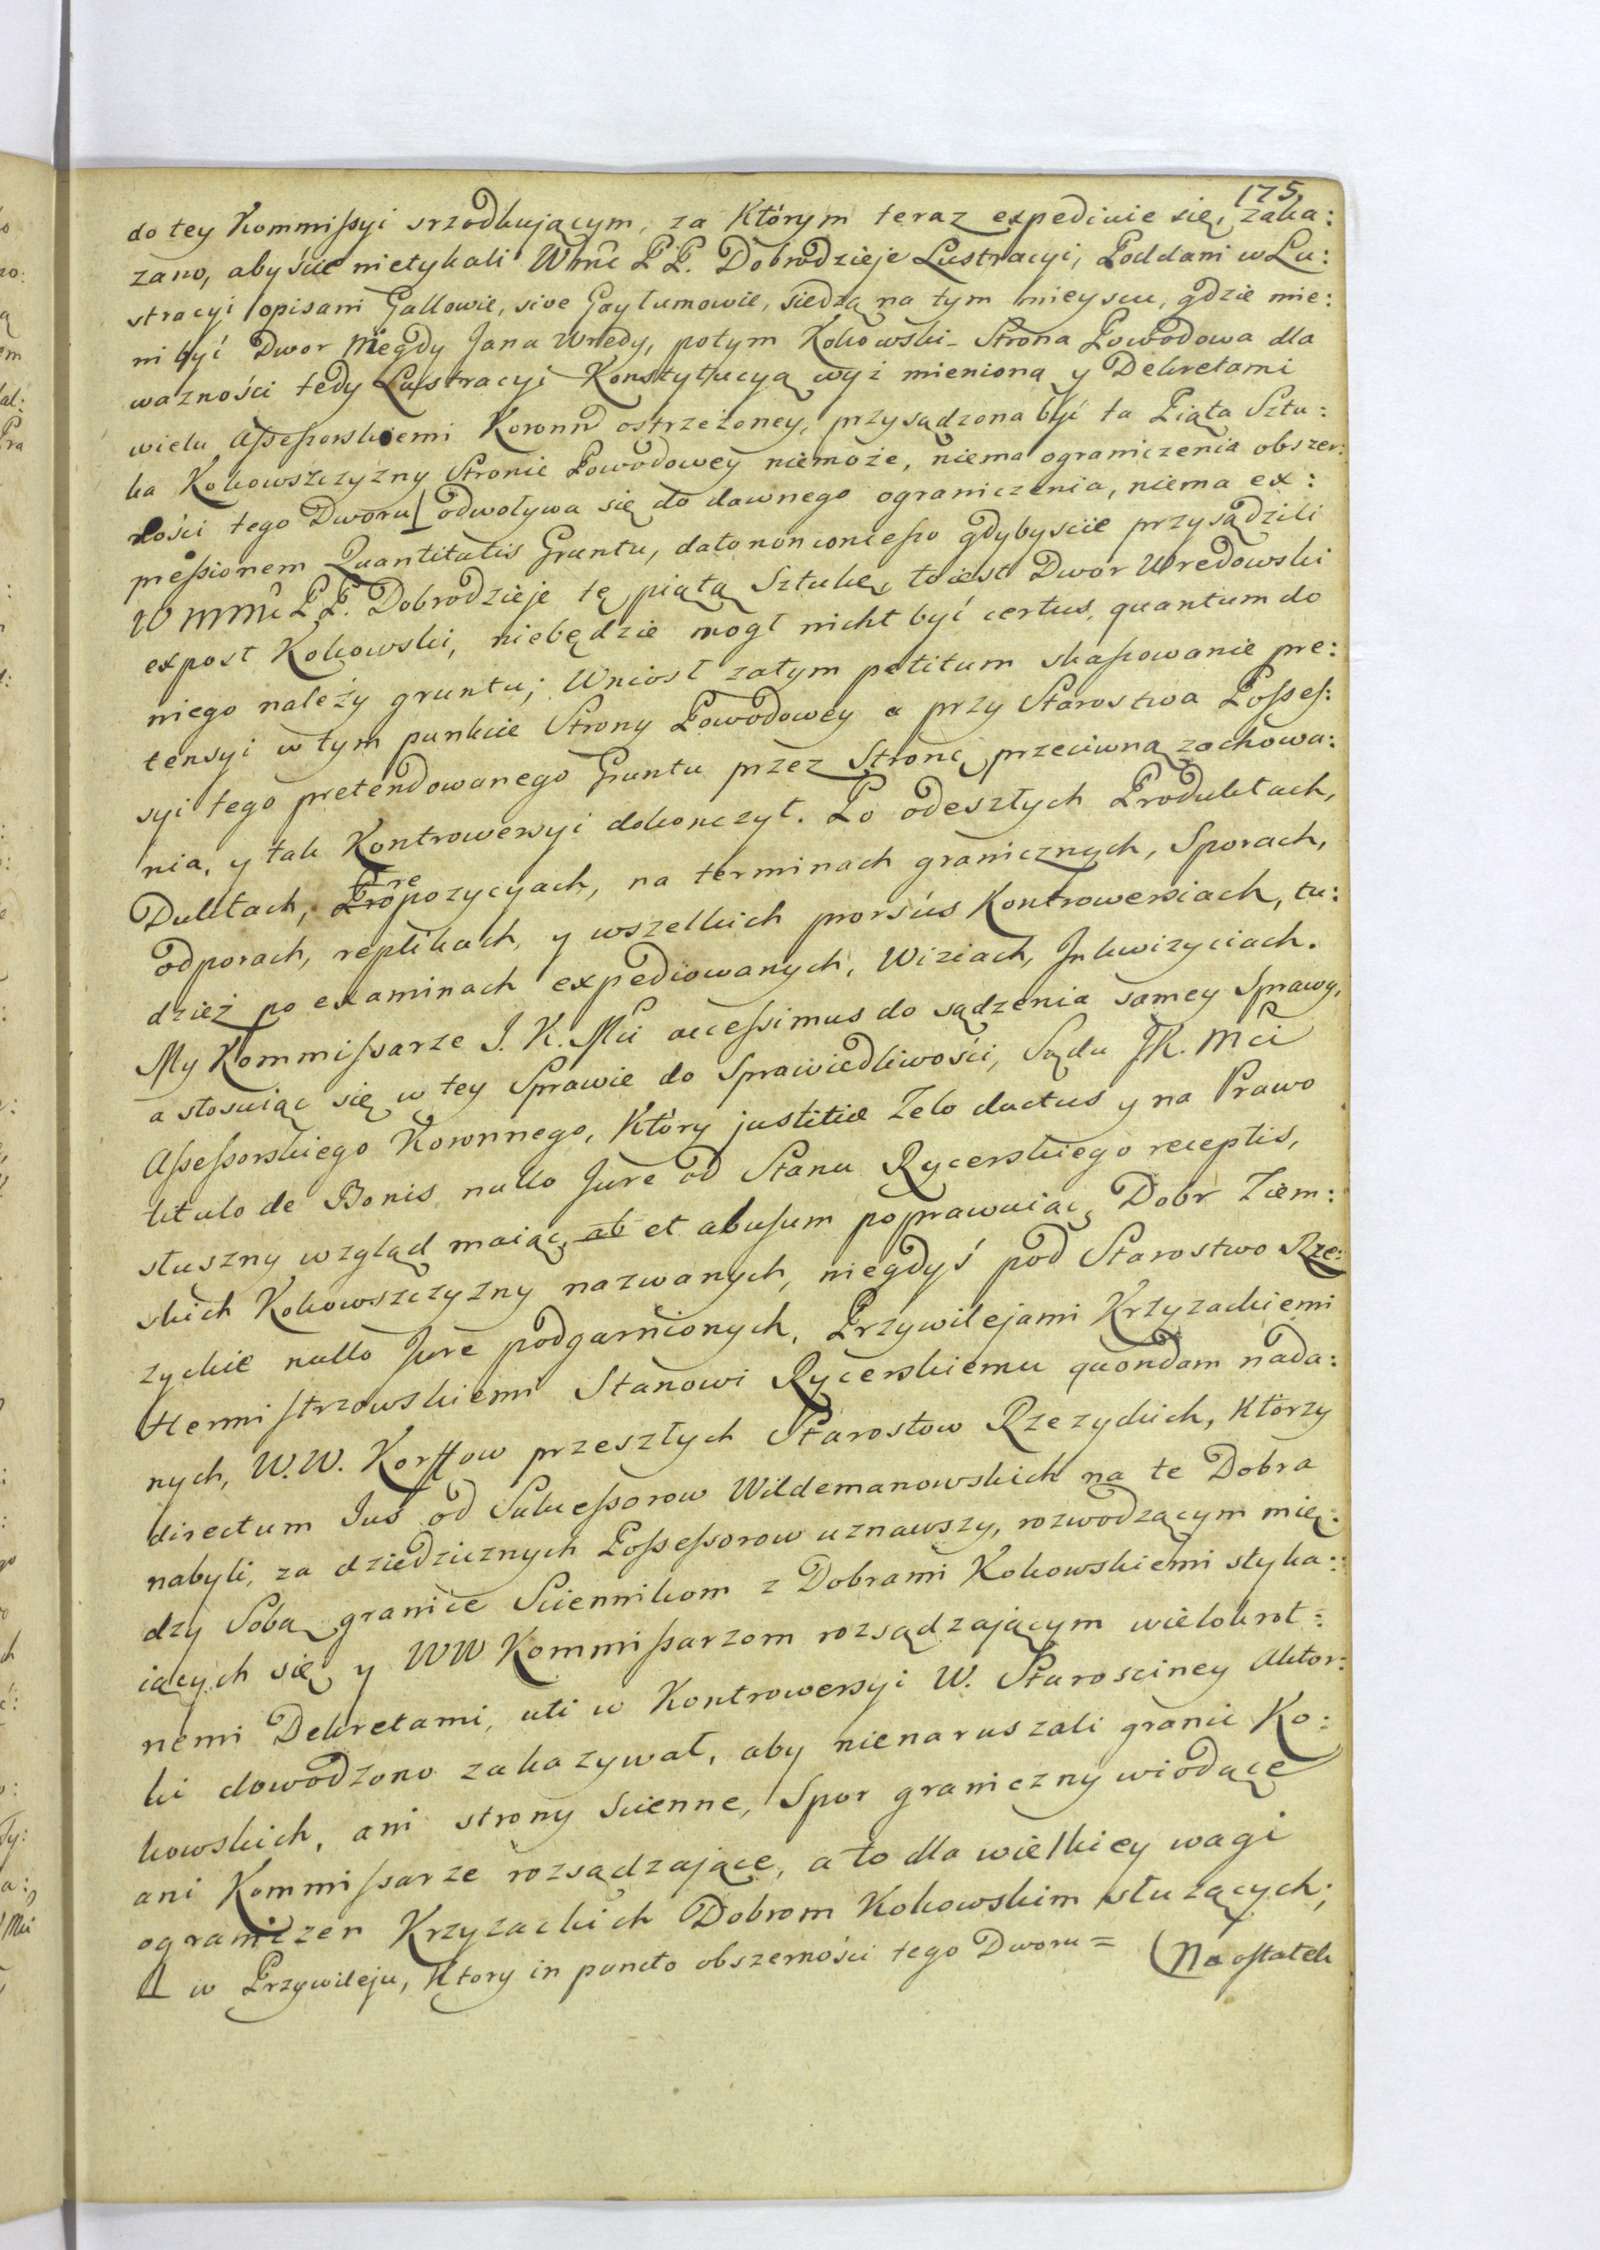 175
do tey Kommissyi srzodkującym, za Którym teraz expediuie się, zaka:
zano, abyście nietykali Wmć PP. Dobrodzieje Lustracyi, Poddani w Lu:
stracyi opisani Gallowie, sive Gaylumowie, siedzą na tym mieyscu, gdzie mie:
ni być Dwor Niegdy Jana Wredy, potym Kokowski_ Strona Powodowa dla
wazności tedy Lustracyi Konstytucyą wyż mienioną y Dekretami
wielu Assessorskiemi Koronn ostrzeżoney, przysądzona być ta Piąta Sztu:
ka Kokowszczyzny Stronie Powodowey niemoże, niema ograniczenia obszer:
ności tego Dworu odwoływa się do dawnego ograniczenia, niema ex:
pressionem Quantitatis Gruntu, dato non concesso gdybyscie przysądzili
W mmć PP. Dobrodzieje tę piątą Sztukę, to iest Dwor Wredowski
expost Kokowski, niebędzie mogł nicht być certus, quantum do
niego należy gruntu; Wniosł zatym petitum skassowanie pre:
tensyi w tym punkcie Strony Powodowey a przy Starostwa Posses:
syi tego pretendowanego Gruntu przez Stronę przeciwną zachowa:
nia, y tak Kontrowersyi dokonczył. Po odeszłych Produktach,
Duktach, Propozycyach, re na terminach granicznych, Sporach,
odporach, replikach, y wszelkich prorsus Kontrowersiach, tu:
dzież po examinach expediowanych, Wiziach, Inkwizyciach.
My Kommissarze J. K. Mci accessimus do sądzenia samey Sprawy,
a stosuiąc się w tey Sprawie do Sprawiedliwości, Sądu JK. Mci
Assessorskiego Koronnego, Który justitiæ Zelo ductus y na Prawo
titulo de Bonis nullo Jure od Stanu Rycerskiego receptis,
słuszny wzgląd maiąc, ab et abusum poprawuiąc, Dobr Ziem:
skich Kokowszczyzny nazwanych, niegdyś pod Starostwo Rze:
zyckie nullo Jure podgarnionych, Przywilejami Krzyzackiemi
Hermistrzowskiemi Stanowi Rycerskiemu quondam nada:
nych, W.W. Korffow przeszłych Starostow Rzezyckich, Którzy
directum Jus od Sukcessorow Wildemanowskich na te Dobra
nabyli, za dziedzicznych Possessorow uznawszy, rozwodzącym mię:
dzy Sobą granice Sciennikom z Dobrami Kokowskiemi styka:
iących się y WW Kommissarzom rozsądzającym wielokrot:
nemi Dekretami, uti w Kontrowersyi W. Starosciney Aktor:
ki dowodzono zakazywał, aby nienaruszali granic Ko:
kowskich, ani strony Scienne, Spor graniczny wiodące
ani Kommissarze rozsądzające, a to dla wielkiey wagi
ograniczen Krzyzackich Dobrom Kokowskim słuzących;
w Przywileju, Ktory in puncto obszerności tego Dworu = Na ostatek